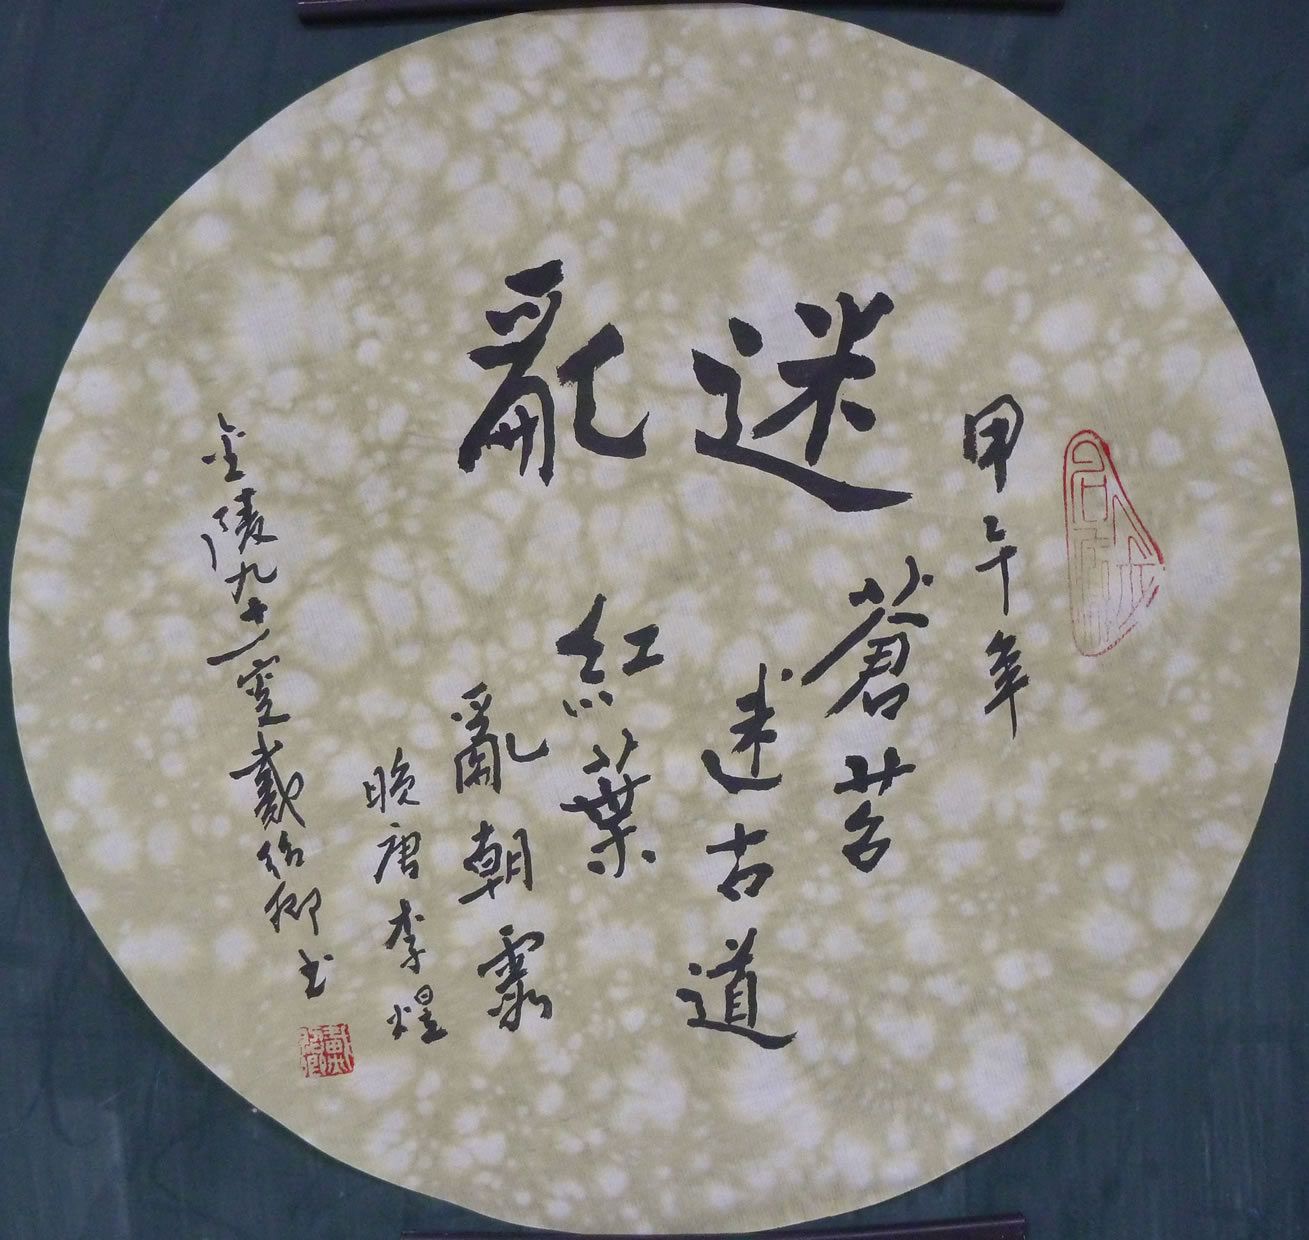 甲午年
迷亂
蒼苔
迷古道
紅葉
亂朝霞
晚唐李煌
金陵九十一叟戴紹卿书